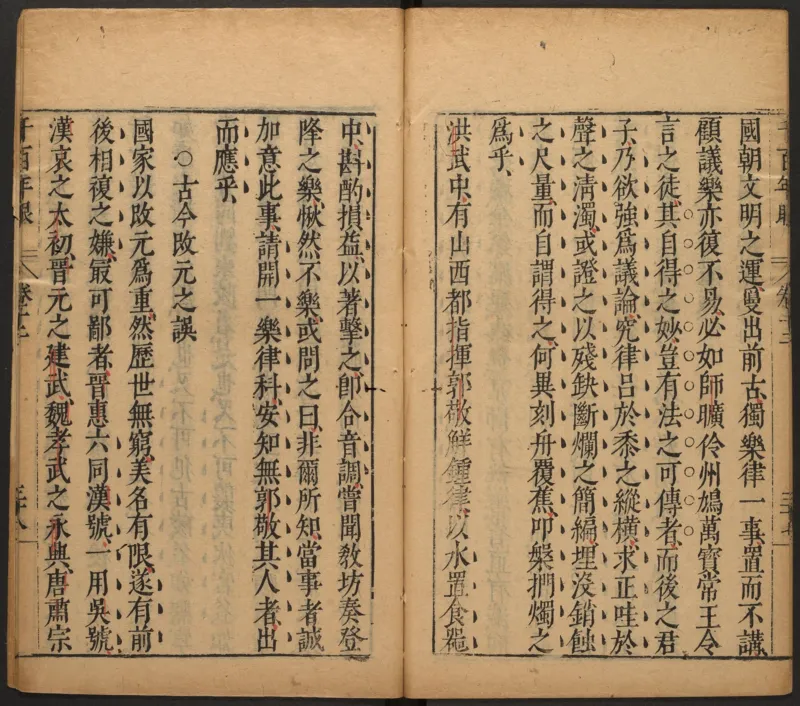 國朝文明之運敻出前古獨樂律一事置而不講
顧議樂亦復不易必如師曠伶州鳩萬寶常王令
言之徒其自得之妙豈有法之可傳者而後之君
子乃欲強爲議論究律吕於黍之縱横求正哇於
聲之清濁或證之以殘缺斷爛之簡編埋没銷蝕
之尺量而自謂得之何異刻舟覆蕉叩槃捫燭之
爲乎
洪武中有山西都指揮郭敬鮮鍾律以水置食甌
中斟酌損益以著擊之卽合音調嘗聞敎坊奏登
降之樂愀然不樂或問之曰非爾所知當事者誠
加意此事請開一樂律科安知無郭敬其人者出
而應乎
○古今攺元之誤
國家以攺元爲重然歷世無窮美名有限遂有前
後相複之嫌最可鄙者晋惠六同漢號一用吳號
漢哀之太初晋元之建武魏孝武之永興唐肅宗
千百年眼
卷十二
三十八